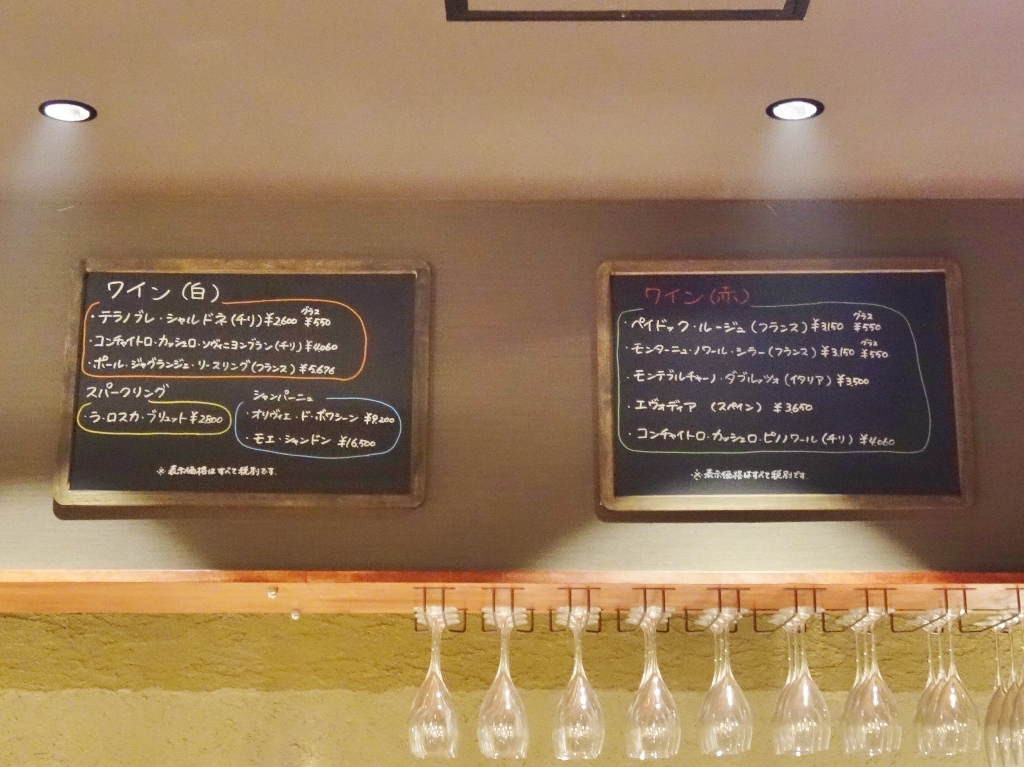 ワイン(白)
グラス
・テラノブレ・シャルドネ(チリ)¥2600 ¥550
・コンチャイトロ・カッシェロ・ソヴィニヨンブラン(チリ)¥4,060
・ポール・ジャグランジェ・リースリング(フランス)¥5,676
スパークリング
・ラ・ロスカ・ブリュット¥2800
シャンパーニュ
・オリヴィエ・ド・ボワシーン ¥9,200
・モエ・シャンドン ¥16,500
※表示価格はすべて税別です。
ワイン(赤)
グラス
・ペイドック・ルージュ(フランス)¥3150 ¥550
グラス
・モンターニュ・ノワール・シラー(フランス)¥3,150 ¥550
・モンテプルチャーノ・ダブルッツォ(イタリア)¥3,500
・エヴォディア (スペイン) ¥3650
・コンチャイトロ・カッシェロ・ピノノワール(チリ)¥4,060
※表示価格はすべて税別です。